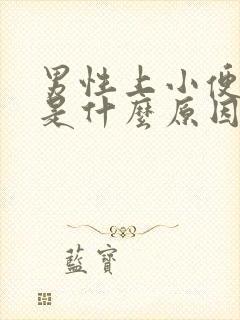 男性上小便
是什麼原因
藍寶